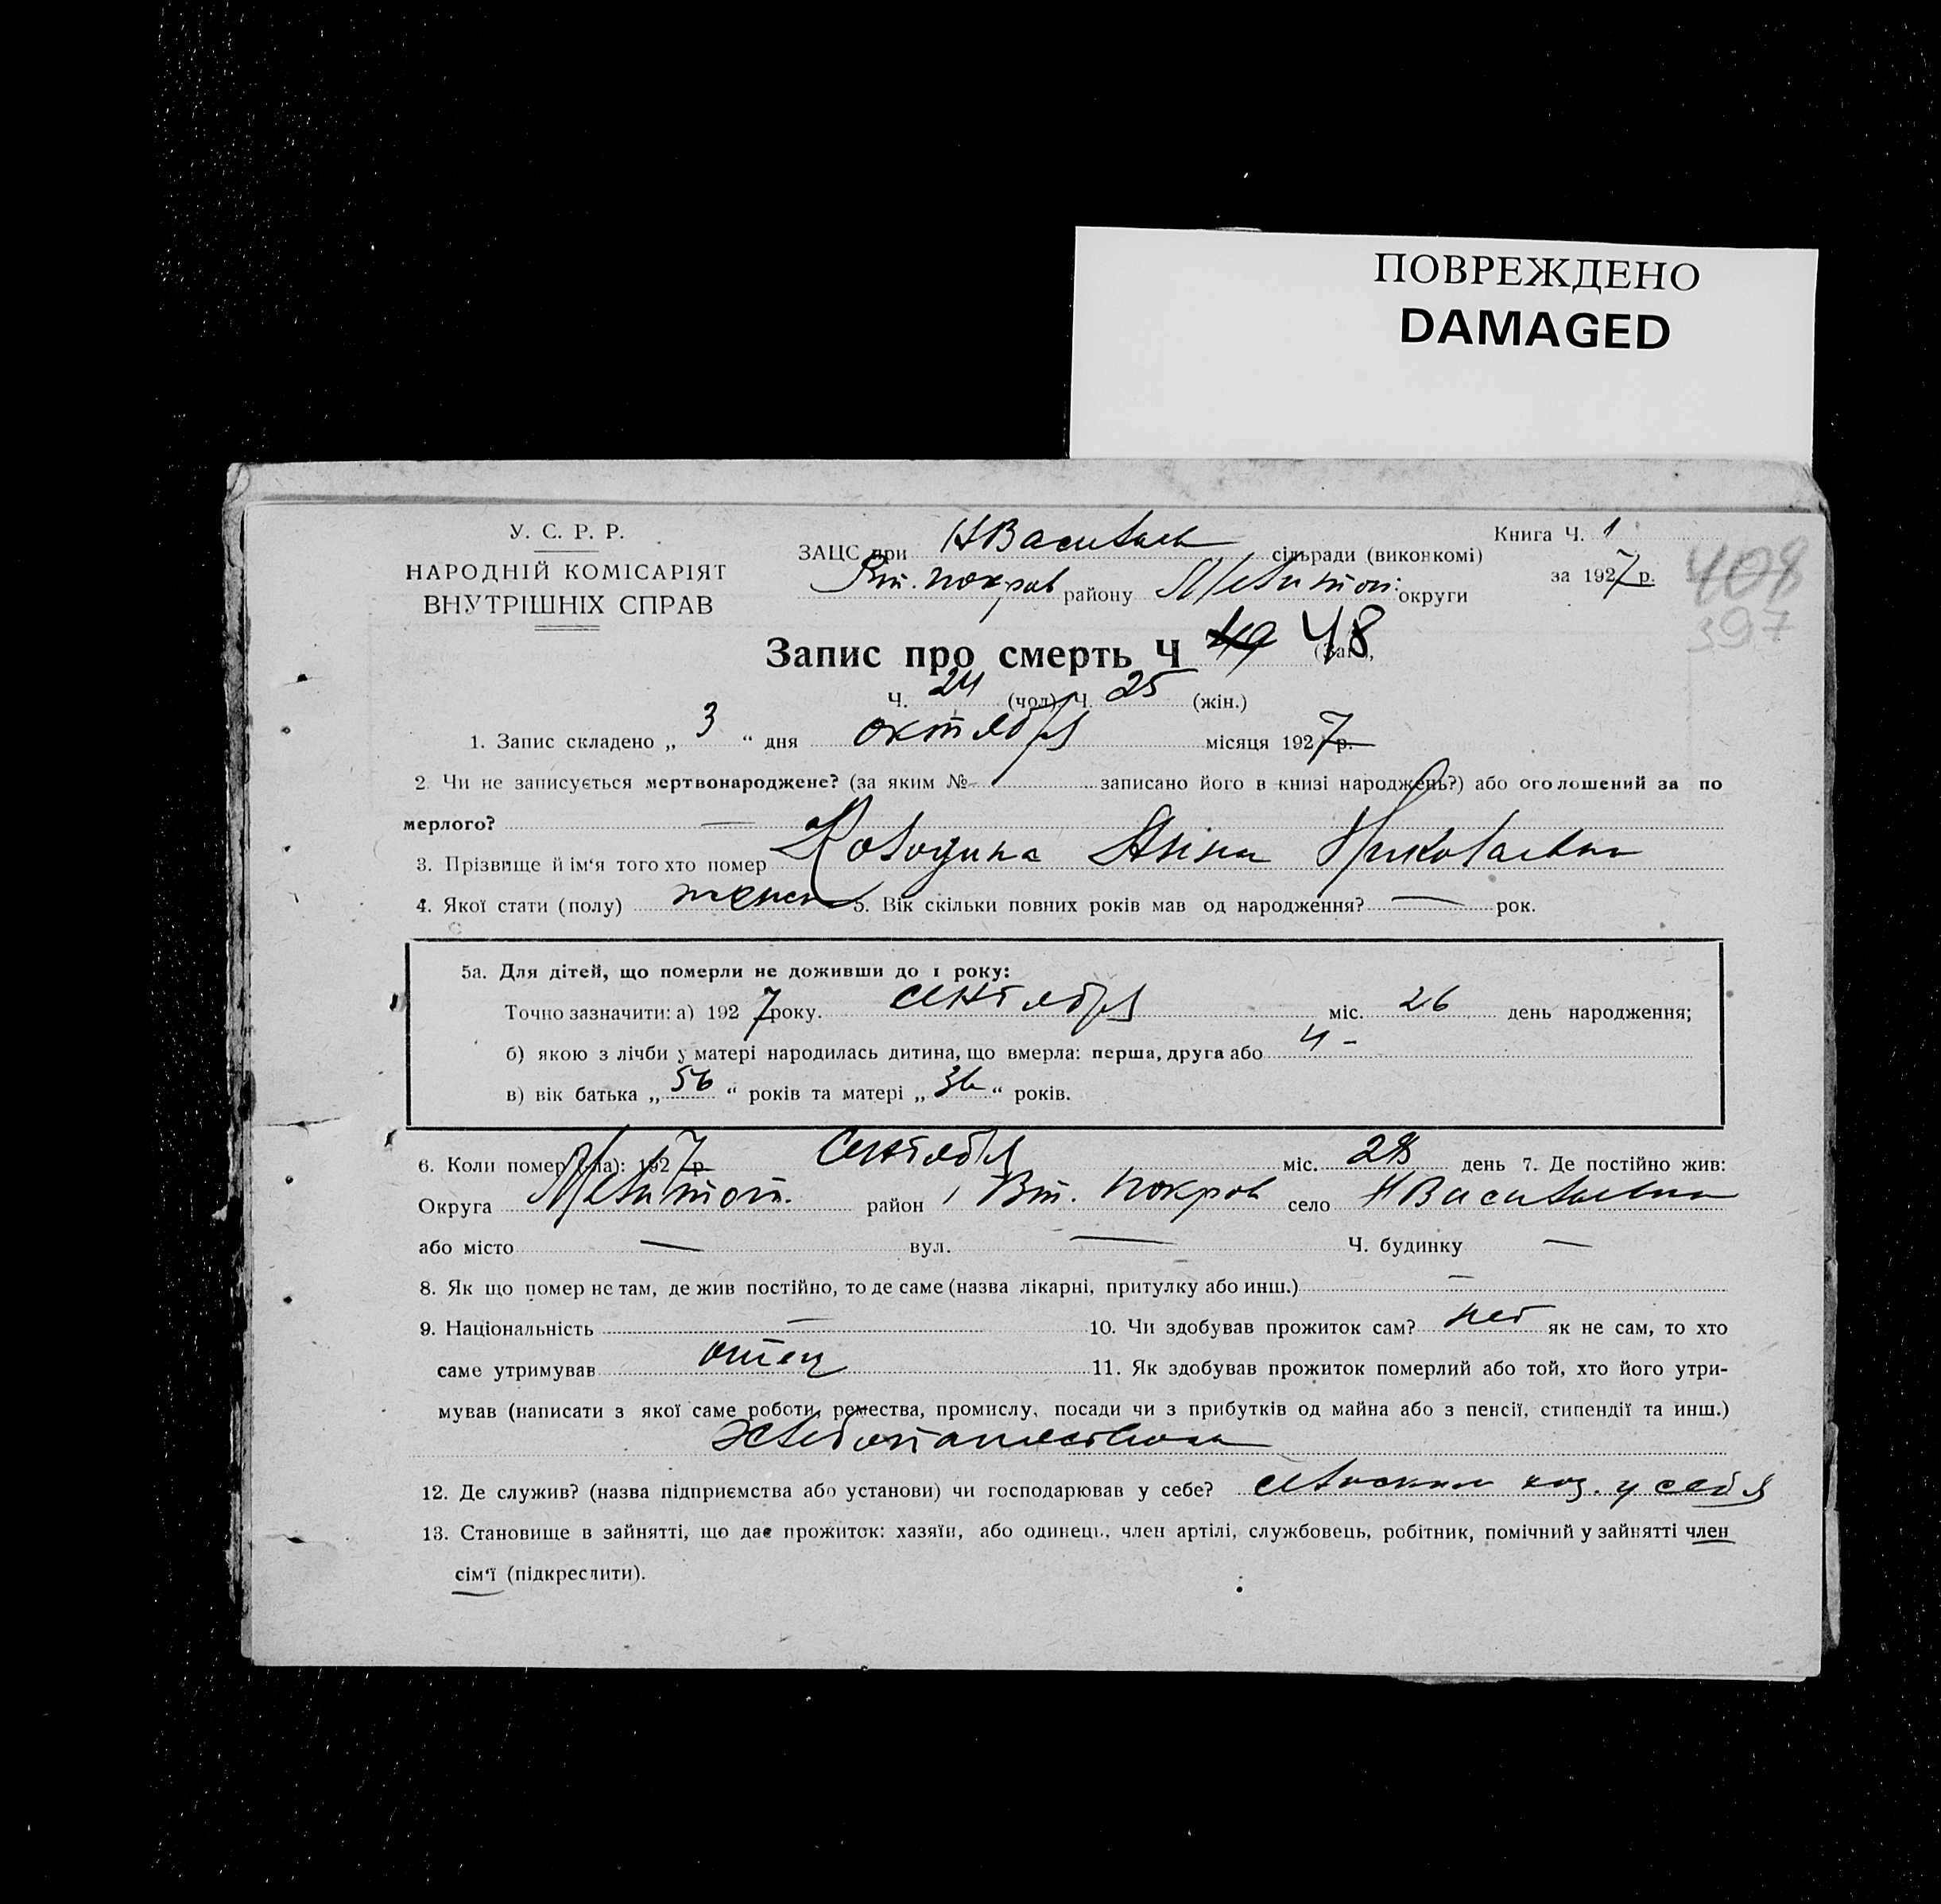 ПОВРЕЖДЕНО
DAMAGED
У. С. Р. Р.
НАРОДНІЙ КОМІСАРІЯТ
ВНУТРІШНІХ СПРАВ
ЗАЦС при НВасильев сільради (виконкомі)
Вт. покров району Мелитоп. округи
Книга Ч. 1
за 1927 р.
408
397
Запис про смерть Ч 48
Ч. 24 (чол) Ч. 25 (жін.)
1. Запис складено „ 3 “ дня октября місяця 1927 р.
2. Чи не записується мертвонароджене? (за яким № записано його в книзі народжень?) або оголошений за по
мерлого? —
3. Прізвище й ім‘я того хто помер Колодина Анна Николаевна
4. Якої стати (полу) женск 5. Вік скільки повних років мав од народження? — рок.
5а. Для дітей, що померли не доживши до 1 року:
Точно зазначити: а) 1927 року. сентября міс. 26 день народження;
б) якою з лічби у матері народилась дитина, що вмерла: перша, друга або 4 -
в) вік батька „ 56 “ років та матері „ 36 “ років.
6. Коли помер (-ла): 1927 р. Сентября міс. 28 день 7. Де постійно жив:
Округа Мелитоп. район Вт. покров село НВасильевка
або місто — вул. — Ч. будинку —
8. Як що помер не там, де жив постійно, то де саме (назва лікарні, притулку або инш.) —
9. Національність — 10. Чи здобував прожиток сам? нет як не сам, то хто
саме утримував отец 11. Як здобував прожиток померлий або той, хто його утри-
мував (написати з якої саме роботи, ремества, промислу, посади чи з прибутків од майна або з пенсії, стипендії та инш.)
хлебопашеством
12. Де служив? (назва підприємства або установи) чи господарював у себе? сельским хоз. у себя
13. Становище в зайнятті, що дає прожиток: хазяїн, або одинець, член артілі, службовець, робітник, помічний у зайнятті член
сім‘ї (підкреслити).